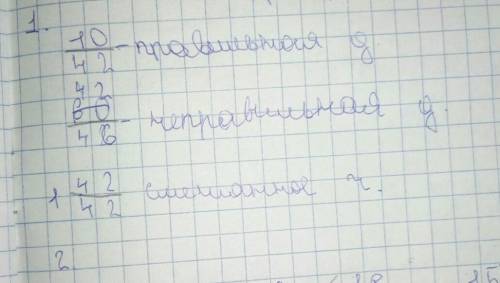 1.
10/42 - правильная д.
42
60/46 - неправильная д.
1 42/42 смешанное ч.
2.